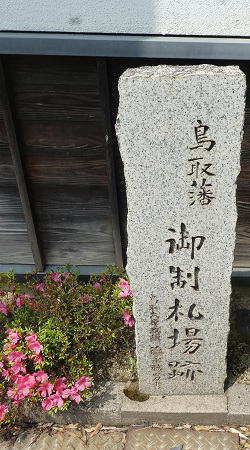 鳥取藩
御制札場跡